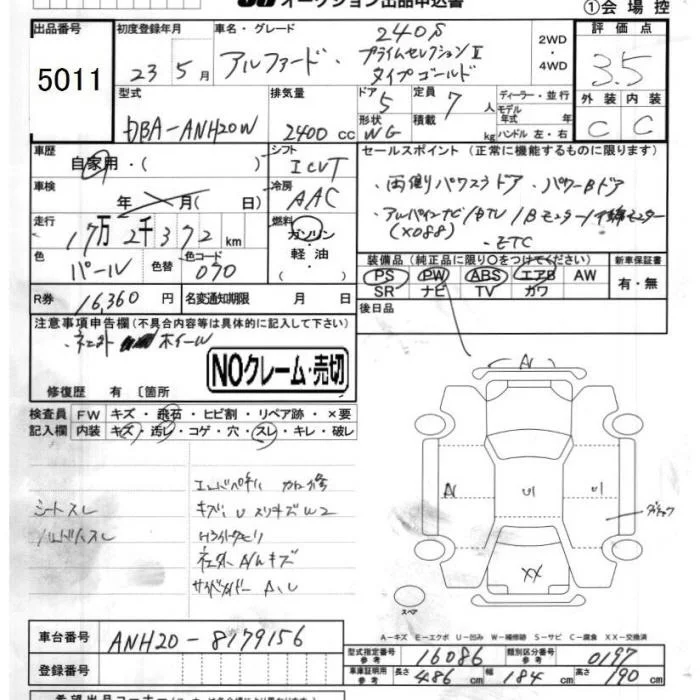 オークション出品申込書
①会場控
出品番号
5011
初度登録年月
23年5月
車名・グレード
アルファード・
240S
プライムセレクションⅡ
タイプゴールド
2WD
・
4WD
評価点
3.5
外装 内装
C C
型式
DBA-ANH20W
排気量
2400cc
ドア
5
形状
WG
定員
7人
積載
kg
ディーラー・並行
モデル
年式 年
ハンドル 左・右
車歴
自家用・( )
シフト
ICVT
車検
年 月( 日)
冷房
AAC
走行
17万2千372km
燃料
ガソリン
・
軽油
・
( )
色
パール
色替
色コード
070
R券
16,360円
名変通知期限 月 日
セールスポイント(正常に機能するものに限ります)
・両側パワースラドア ・パワーBドア
・アルパインナビ/BTV/Bモニター/
(X088)
・ETC
装備品(純正品に限り○をつけてください)
PS PW ABS エアB AW
SR ナビ TV カワ
新車保証書
有・無
後日品
注意事項申告欄(不具合内容等は具体的に記入して下さい)
ホイール
NOクレーム・売切
修復歴 有 〔箇所
検査員
記入欄
FW キズ・飛石・ヒビ割・リペア跡・×要
内装 キズ・汚レ・コゲ・穴・スレ・キレ・破レ
シートスレ
ハンドルスレ
キズ U スリキズ W2
キズ
A U
A
A
U
U
XX
スペア
A-キズ E-エクボ U-凹み W-補修跡 S-サビ C-腐食 XX-交換済
車台番号
ANH20-8179156
登録番号
型式指定番号
参考
16086
類別区分番号
参考
0197
車庫証明用
参考
長さ 486cm 幅 184cm 高さ 190cm
希望出品コーナー